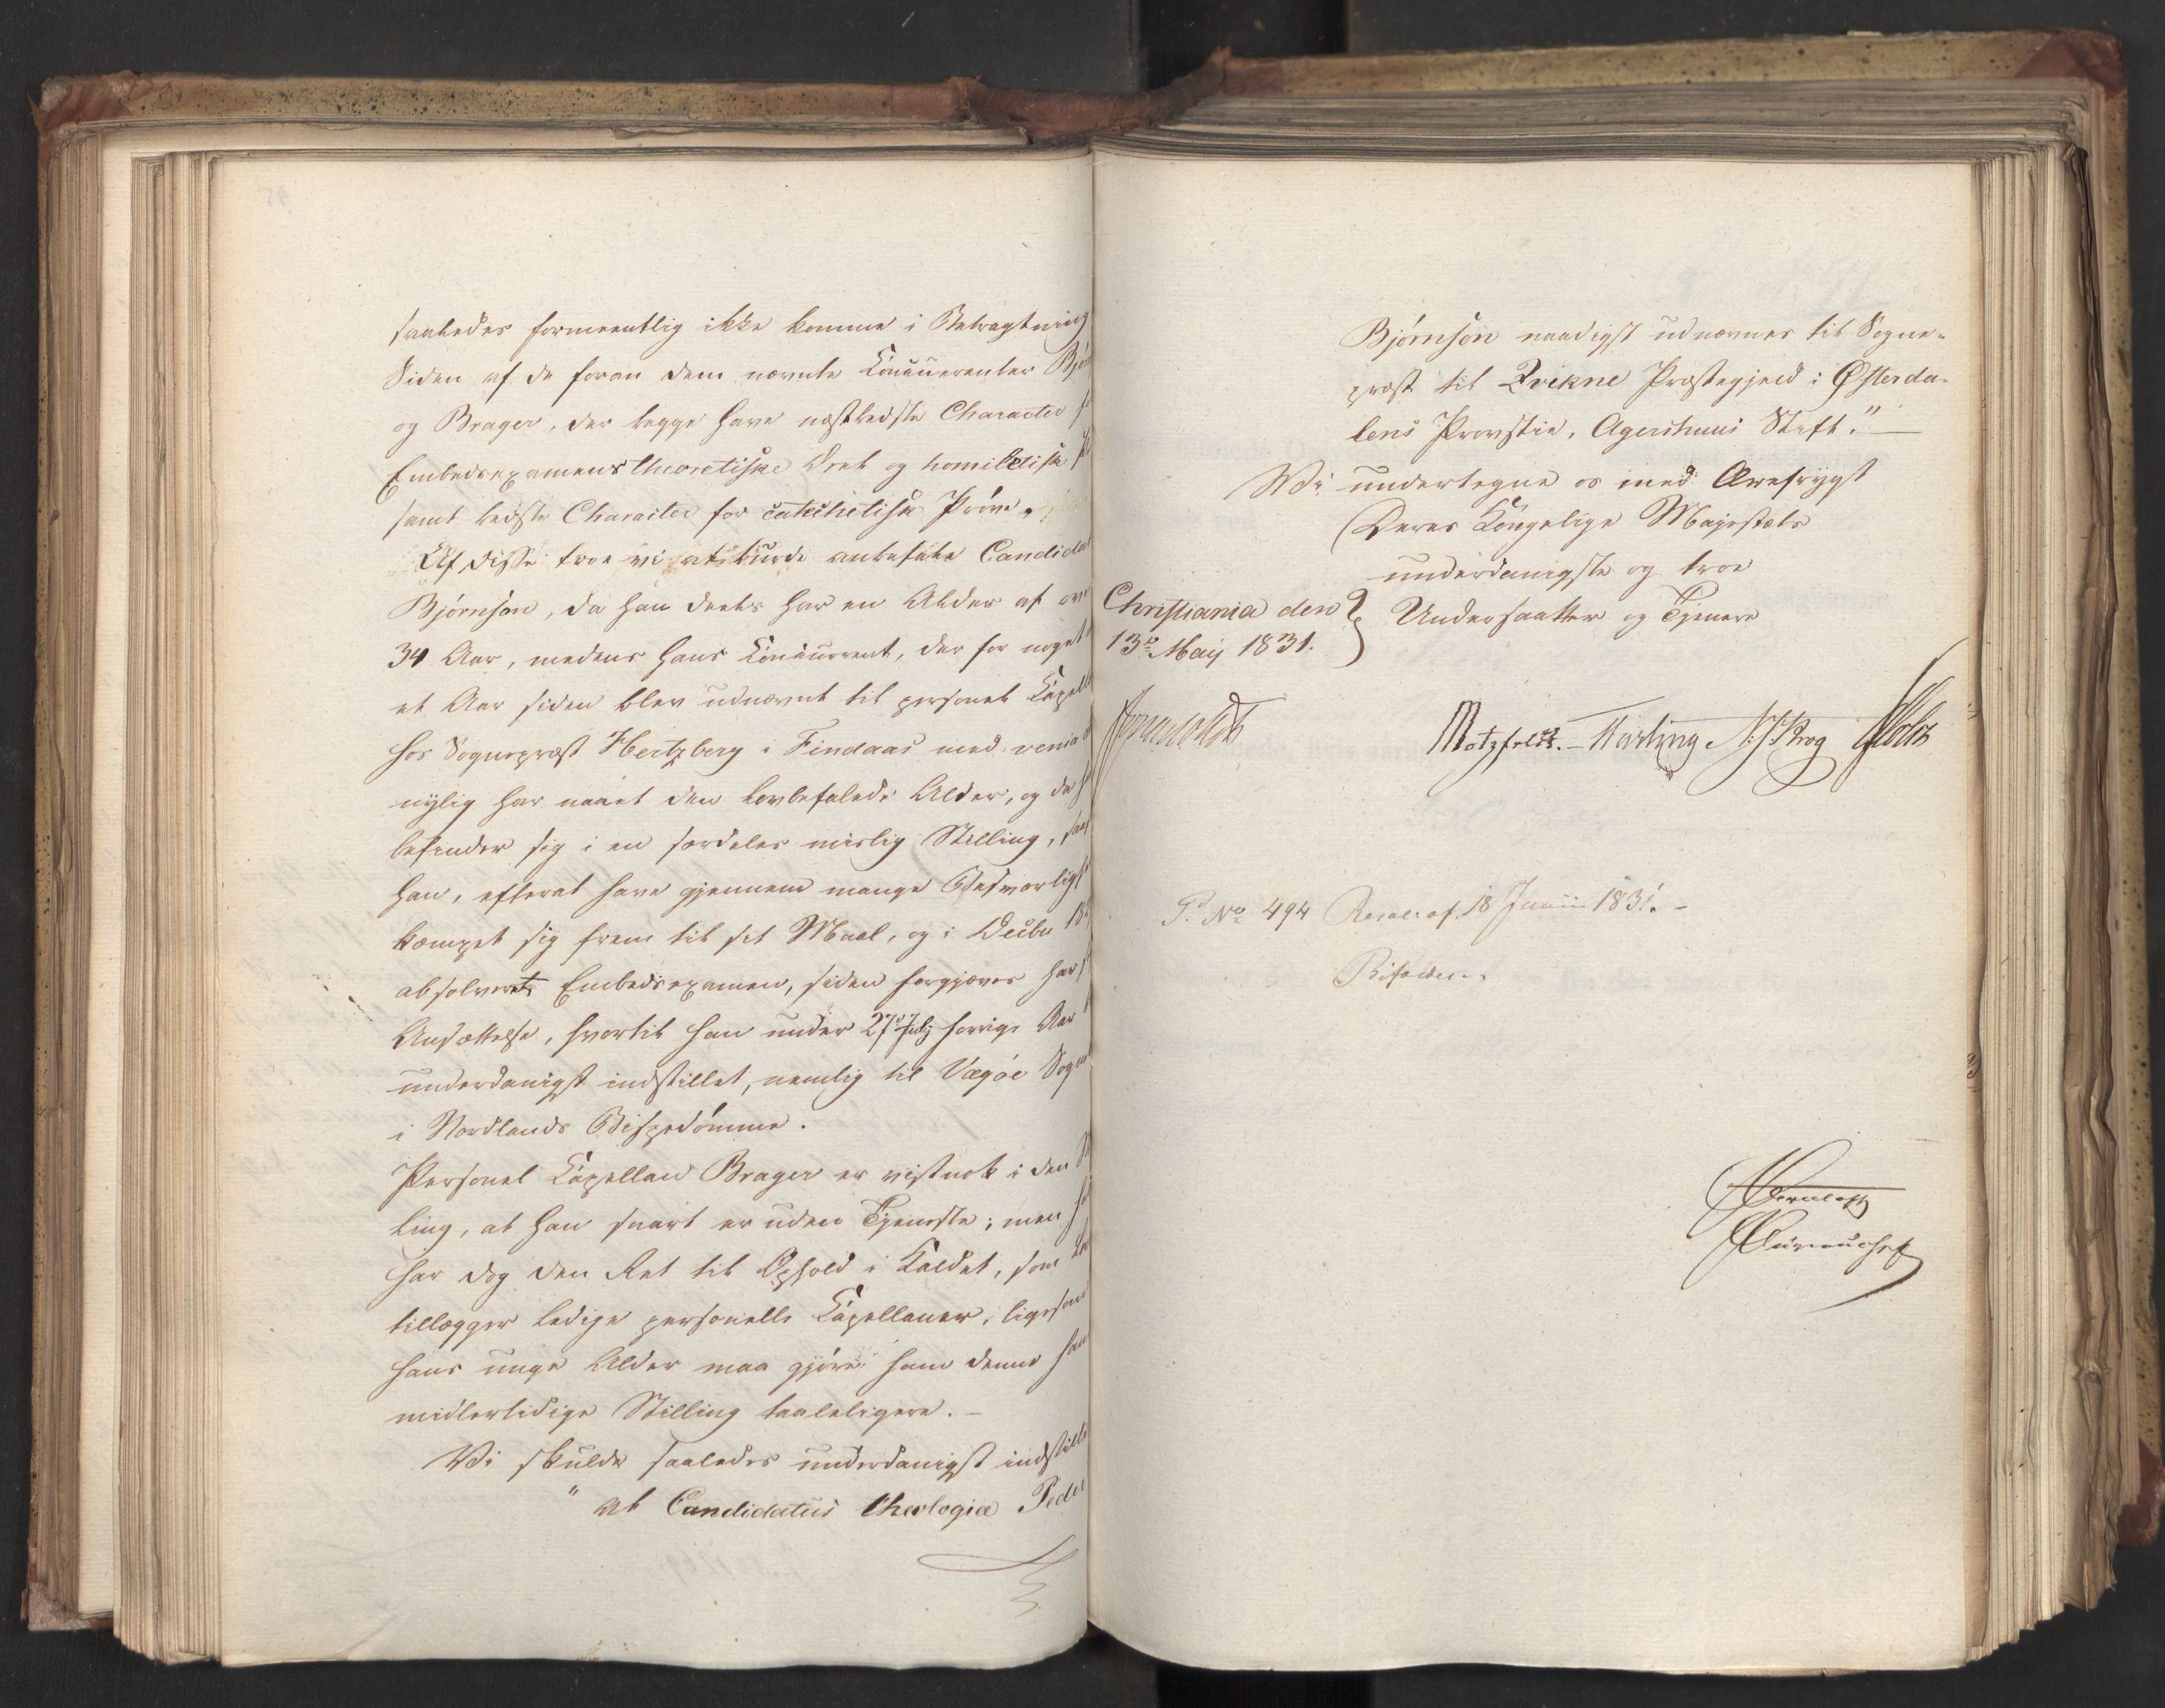 saaledes formeentlig ikke komme i Betragtning
Siden af de foran dem nævnte Concurrenter Bjør
og Brager, der begge have næstbedste Character
Embedsexamens theoretiske Deel og homiletisk
samt bedste Character for catechetisk Prøve.
Af disse troe vi at burde anbefale Candidat
Bjørnson, da han deels har en Alder af over
34 Aar, medens hans Concurrent, der for noget
et Aar siden blev udnævnt til personel Capell
hos Sognepræst Hertzberg i Findaas med venia
nylig har naaet den lovbefalede Alder, og da
befinder sig i en særdeles mislig Stilling, saas
han, efterat have gjennem mange Besværligh
kæmpet sig frem til sit Maal, og i Decbr 18
absolveret Embedsexamen, siden forgjæves har
Ansættelse, hvortil han under 27de July forrige Aar
underdanigst indstillet, nemlig til Vegøe Sogne
i Nordlands Bispedømme.
Personel Capellan Brager er vistnok i den
ling, at han snart er uden Tjeneste; men
har dog den Ret til Ophold i Kaldet, som
tillægger ledige personelle Capellaner, ligesom
hans unge Alder maa gjøre ham denne
midlertidige Stilling taaleligere.-
Vi skulde saaledes underdanigst indstille
" at Candidatus theologiæ Peder
Bjørnson naadigst udnævnes til Sogne-
præst til Qvikne Præstegjeld i Østerda-
lens Provstie, Agershuus Stift."
Vi undertegne os med Ærefrygt
Deres Kongelige Majestæts
underdanigste og troe
Undersaatter og Tjenere
Christiania den
13de Maij 1831.
Motzfeldt. Hertzberg N. J. Krog
P. No 494 Resol: af 18 Junii 1831.-
Bifaldes.
Bureauchef